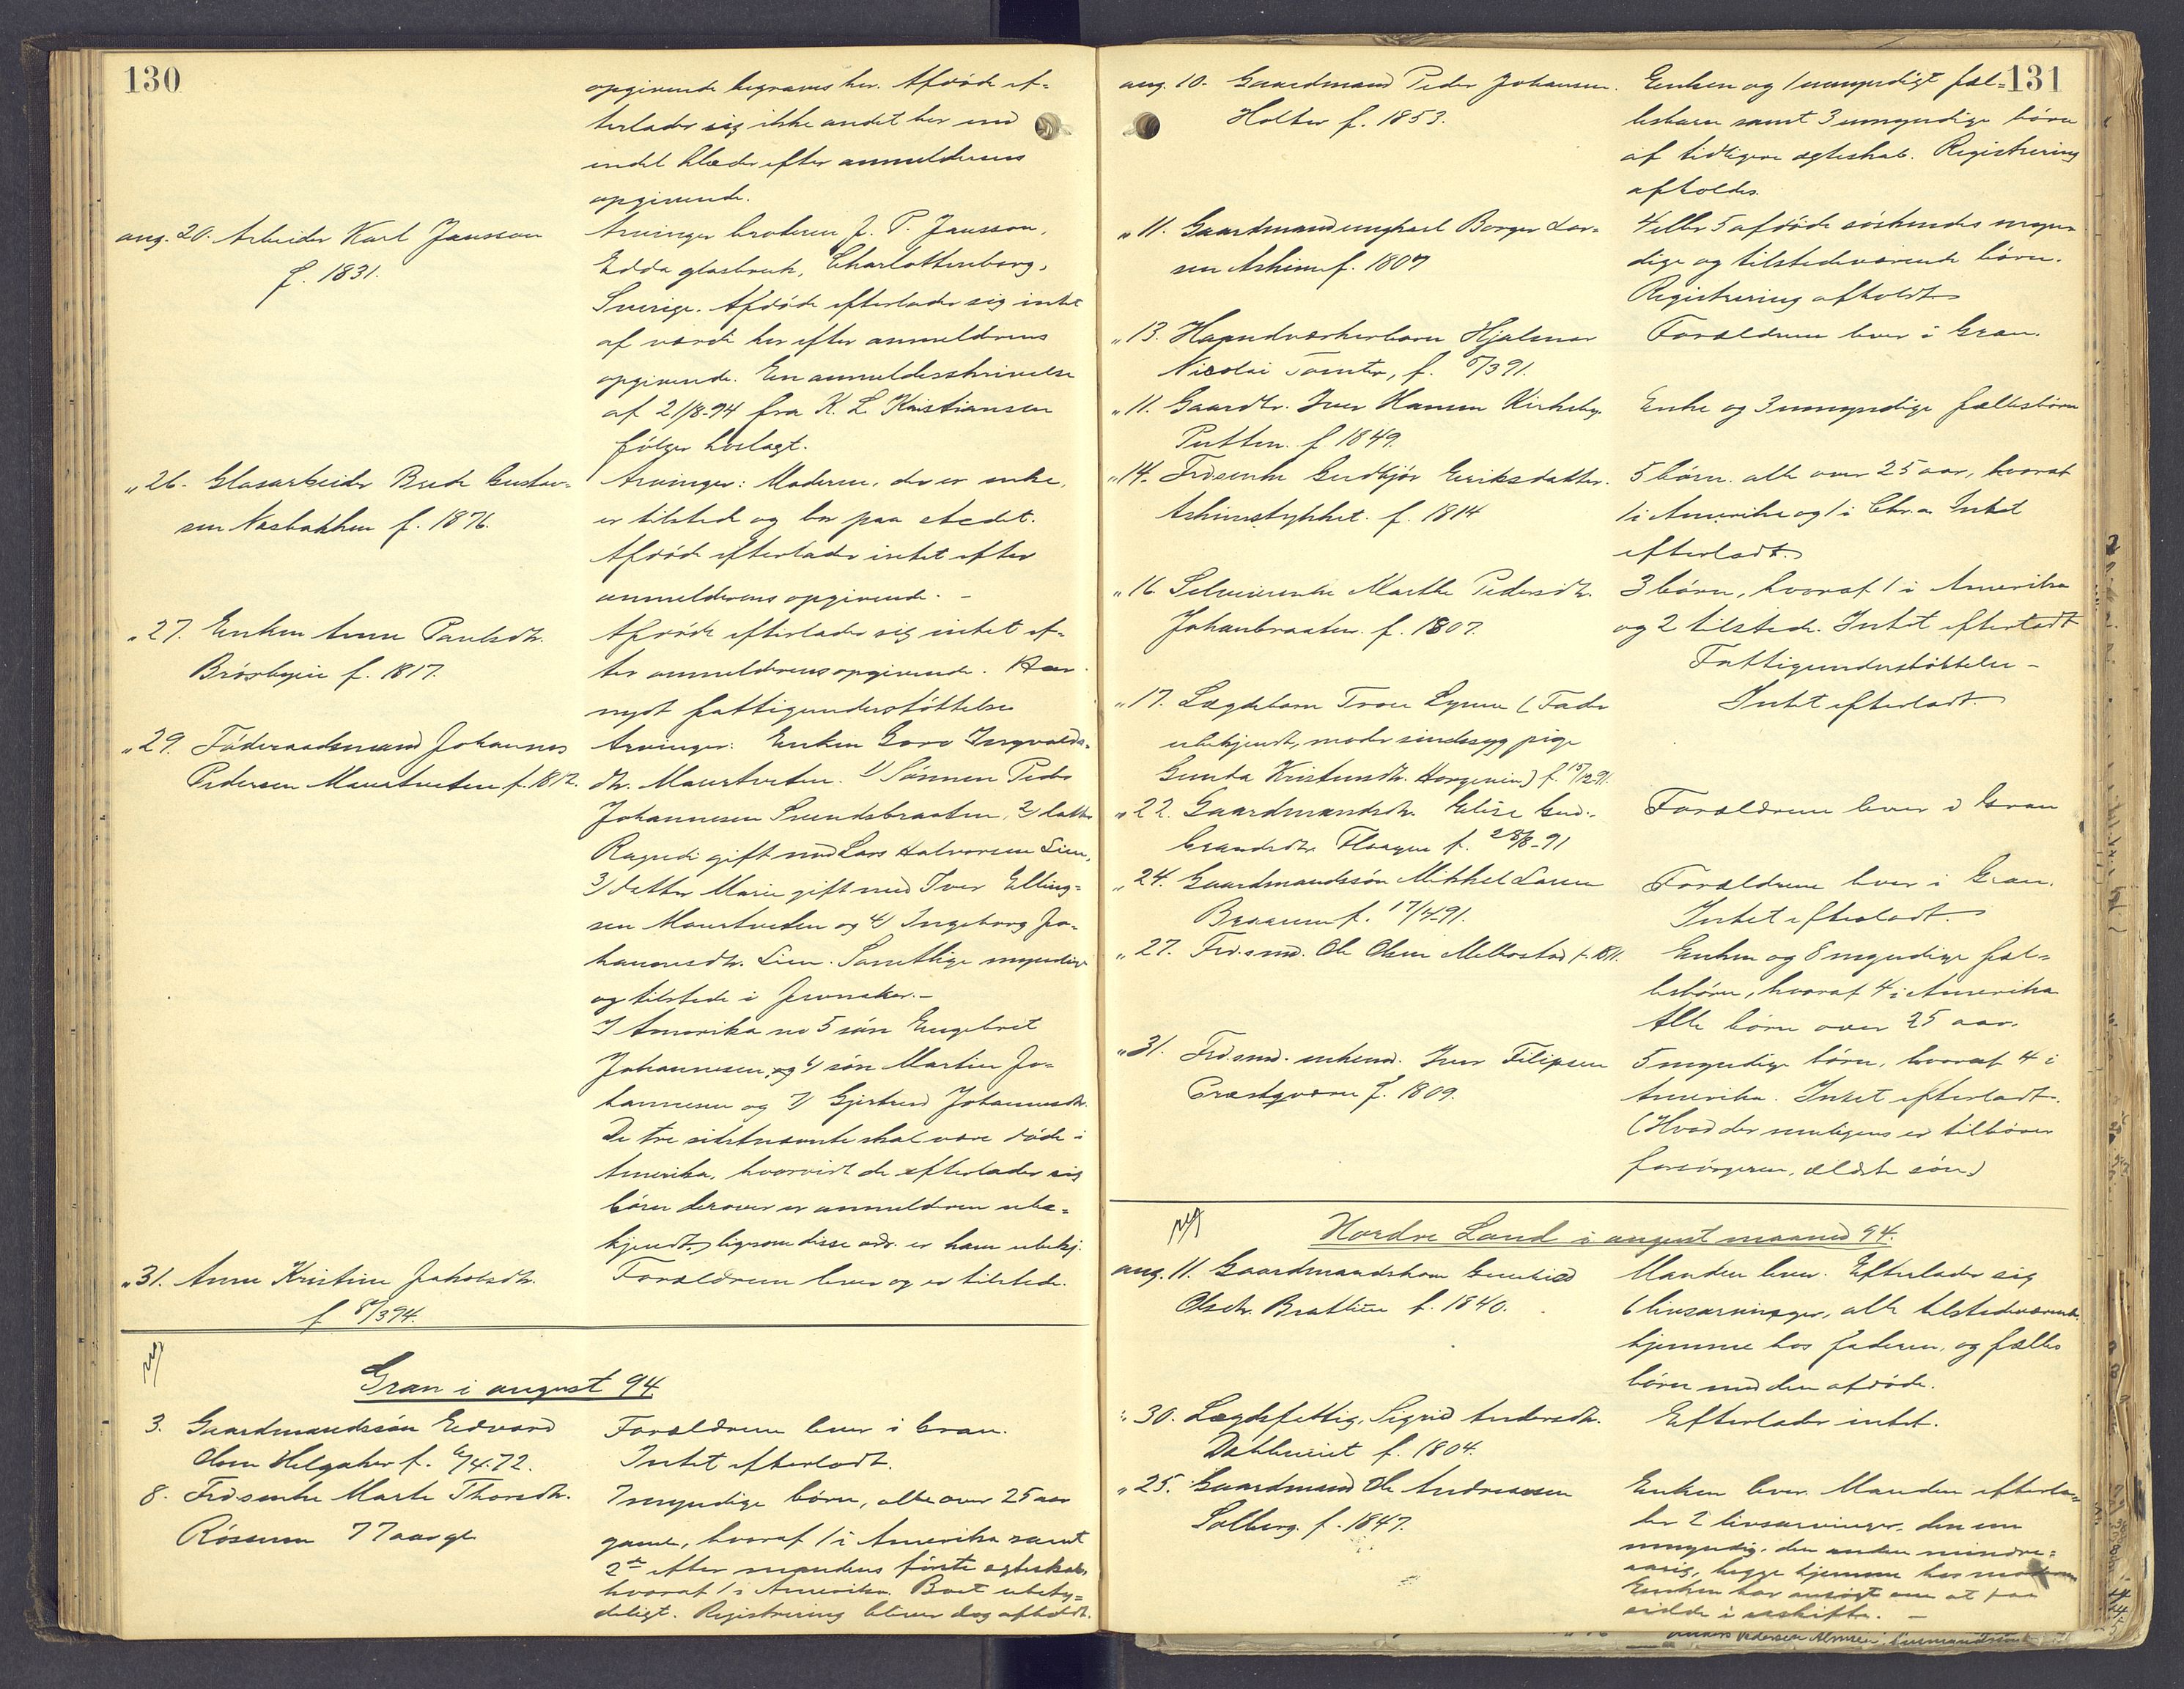 130
opgivende begraves her. Afdöde ef-
terlader sig ikke andet her end
endel klæder efter anmelderens
opgivende.
aug. 20. Arbeider Karl Jansson
f. 1831.
Arvinger broderen J. P. Jansson,
Edda glasbruk, Charlottenborg,
Sverige. Afdöde efterlader sig intet
af værdi her efter anmelderens
opgivende. En anmeldesskrivelse
af 21/8-94 fra K. L. Kristiansen
fölger hoslagt.
" 26. Glasarbeider Bredo Gustav-
sen Næsbakken f. 1876.
Arvinger: Moderen, der er enke,
er tilstede og bor paa stedet.
Afdöde efterlader intet efter
anmelderens opgivende. -
" 27. Enken Anne Paulsdtr.
f. 1817.
Afdöde efterlader sig intet ef-
ter anmelderens opgivende. Har
nydt fattigunderstöttelse
" 29. Föderaadsmand Johannes
Pedersen Maurtveten f. 1812.
Arvinger: Enken Goro Ingvalds-
dtr. Maurtveten. 1/ Sönnen Peder
Johannesen Svendsbraaten, 2/ datter
Ragndi gift med Lars Halvorsen Lien,
3/ datter Marie gift med Iver Elling-
sen Maurtveten og 4/ Ingeborg Jo-
hannesdtr. Lien. Samtlige myndige
og tilstede i Jevnaker. -
I Amerika no 5 sön Engebret
Johannesen, og 6/ sön Martin Jo-
hannesen og 7/ Gjertrud Johannesdtr.
De tre sidstnævnte skal være döde i
Amerika, hvorvidt de efterlader sig
börn derover er anmelderen ube-
kjendt, ligesom disse adr. er ham ubekj.
" 31. Anne Kristine Jakobsdtr.
f 8/3 94.
Forældrene lever og er tilstede.
Gran i august 94
3. Gaardmandssön Edvard
Olsen Helgaker f. 6/4.72.
Forældrene lever i Gran.
Intet efterladt.
8. Frdsenke Marte Thorsdtr.
Rössum 77 aar gl.
7 myndige börn, alle over 25 aar
gamle, hvoraf 1 i Amerika samt
2de efter mandens förste egteskab,
hvoraf 1 i Amerika. Boet ubety-
deligt. Registrering bliver dog afholdt.
131
aug. 10. Gaardmand Peder Johansen
Holter f. 1853.
Enken og 1 umyndigt fæl-
lesbarn samt 3 umyndige börn
af tidligere egteskab. Registrering
afholdes.
" 11. Gaardmand ungkarl Borger Lar-
sen Askim f. 1807
4 eller 5 afdöde söskendes myn-
dige og tilstedeværende börn.
Registrering afholdt
" 13. Haandværkerbarn Hjalmar
Nicolai Tomter, f. /3 91.
Forældrene lever i Gran.
" 11. Gaardbr. Iver Hansen Kirkeby
Putten. f. 1849.
Enke og 3 umyndige fællesbörn
" 14. Frdsenke Gudbjör Eriksdatter
Askimstykket. f. 1814
5 börn. alle over 25 aar, hvoraf
1 i Amerika og 1 i Chr.a Intet
efterladt.
" 16. Selveierenke Marthe Pedersdtr.
Johanbraaten. f. 1807.
3 börn, hvoraf 1 i Amerika
og 2 tilstede. Intet efterladt
Fattigunderstöttelse -
" 17. Lægdebarn Trom Lynne (Fader
ubekjendt, moder sindssyg pige
Gunda Kristensdtr. ) f. 15/12 91.
Intet efterladt.
" 22. Gaardmandsdtr. Elise Gud-
brandsdtr. Flaagen f. 28/8-91
Forældrene lever i Gran
" 24. Gaardmandssön Mikkel Larsen
f. 17/4-91.
Forældrene lever i Gran.
Intet efterladt.
" 27. Frdsmd. Ole Olsen Melbostad f. 1811.
Enken og 8 myndige fæl-
lesbörn, hvoraf 4 i Amerika
Alle börn over 25 aar.
" 31. Frdsmd. enkemd. Iver Filipsen
Præstqværn f. 1809.
5 myndige börn, hvoraf 4 i
Amerika. Intet efterladt.
(Hvad der muligens er tilhörer
forsörgeren, ældste sön)
Nordre Land i august maaned 94.
aug. 11. Gaardmandskone Gunhild
Olsdtr. Bratlien f. 1840.
Manden lever. Efterlader sig
6 livsarvinger, alle tilstedeværende
hjemme hos faderen, og fælles
börn med den afdöde.
" 30. Lægdsfattig, Sigrid Andersdtr.
f. 1804.
Efterlader intet.
" 25. Gaardmand Ole Andreassen
Solberg. f. 1847.
Enken lever. Manden efterla-
der 2 livsarvinger, den ene
umyndig, den anden mindre-
aarig, begge hjemme hos moderen
Enken har ansögt om at faa
sidde i uskifte. -